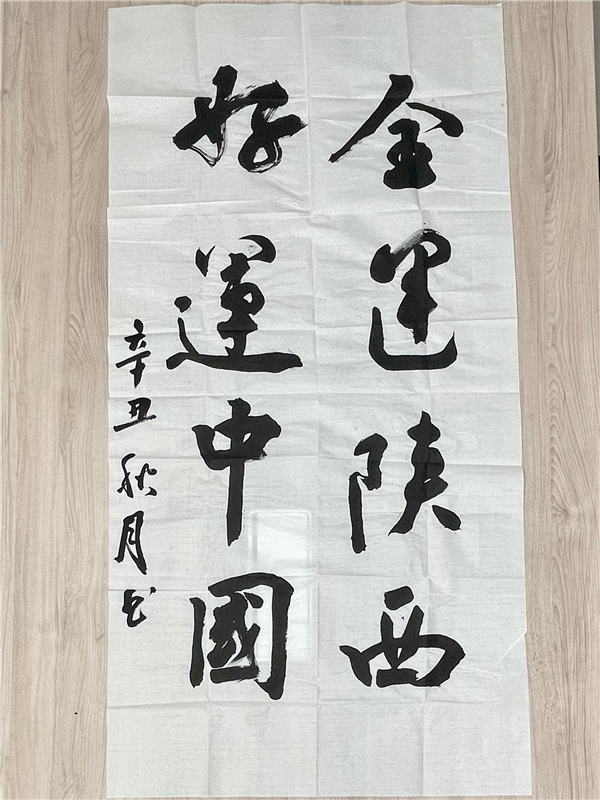 全運陕西
好運中國
辛丑秋月书